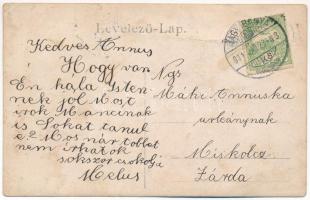 Levelező-Lap.
Kedves Annus
Hogy van
Én hála Isten
nek jól Most
irok Mancinak
is Sokat tanul
e? Mos már többet
nem irhatok
sokszor csókolja
Melus
Ngs
Máki Annuska
urleánynak
Miskolcz
Zárda